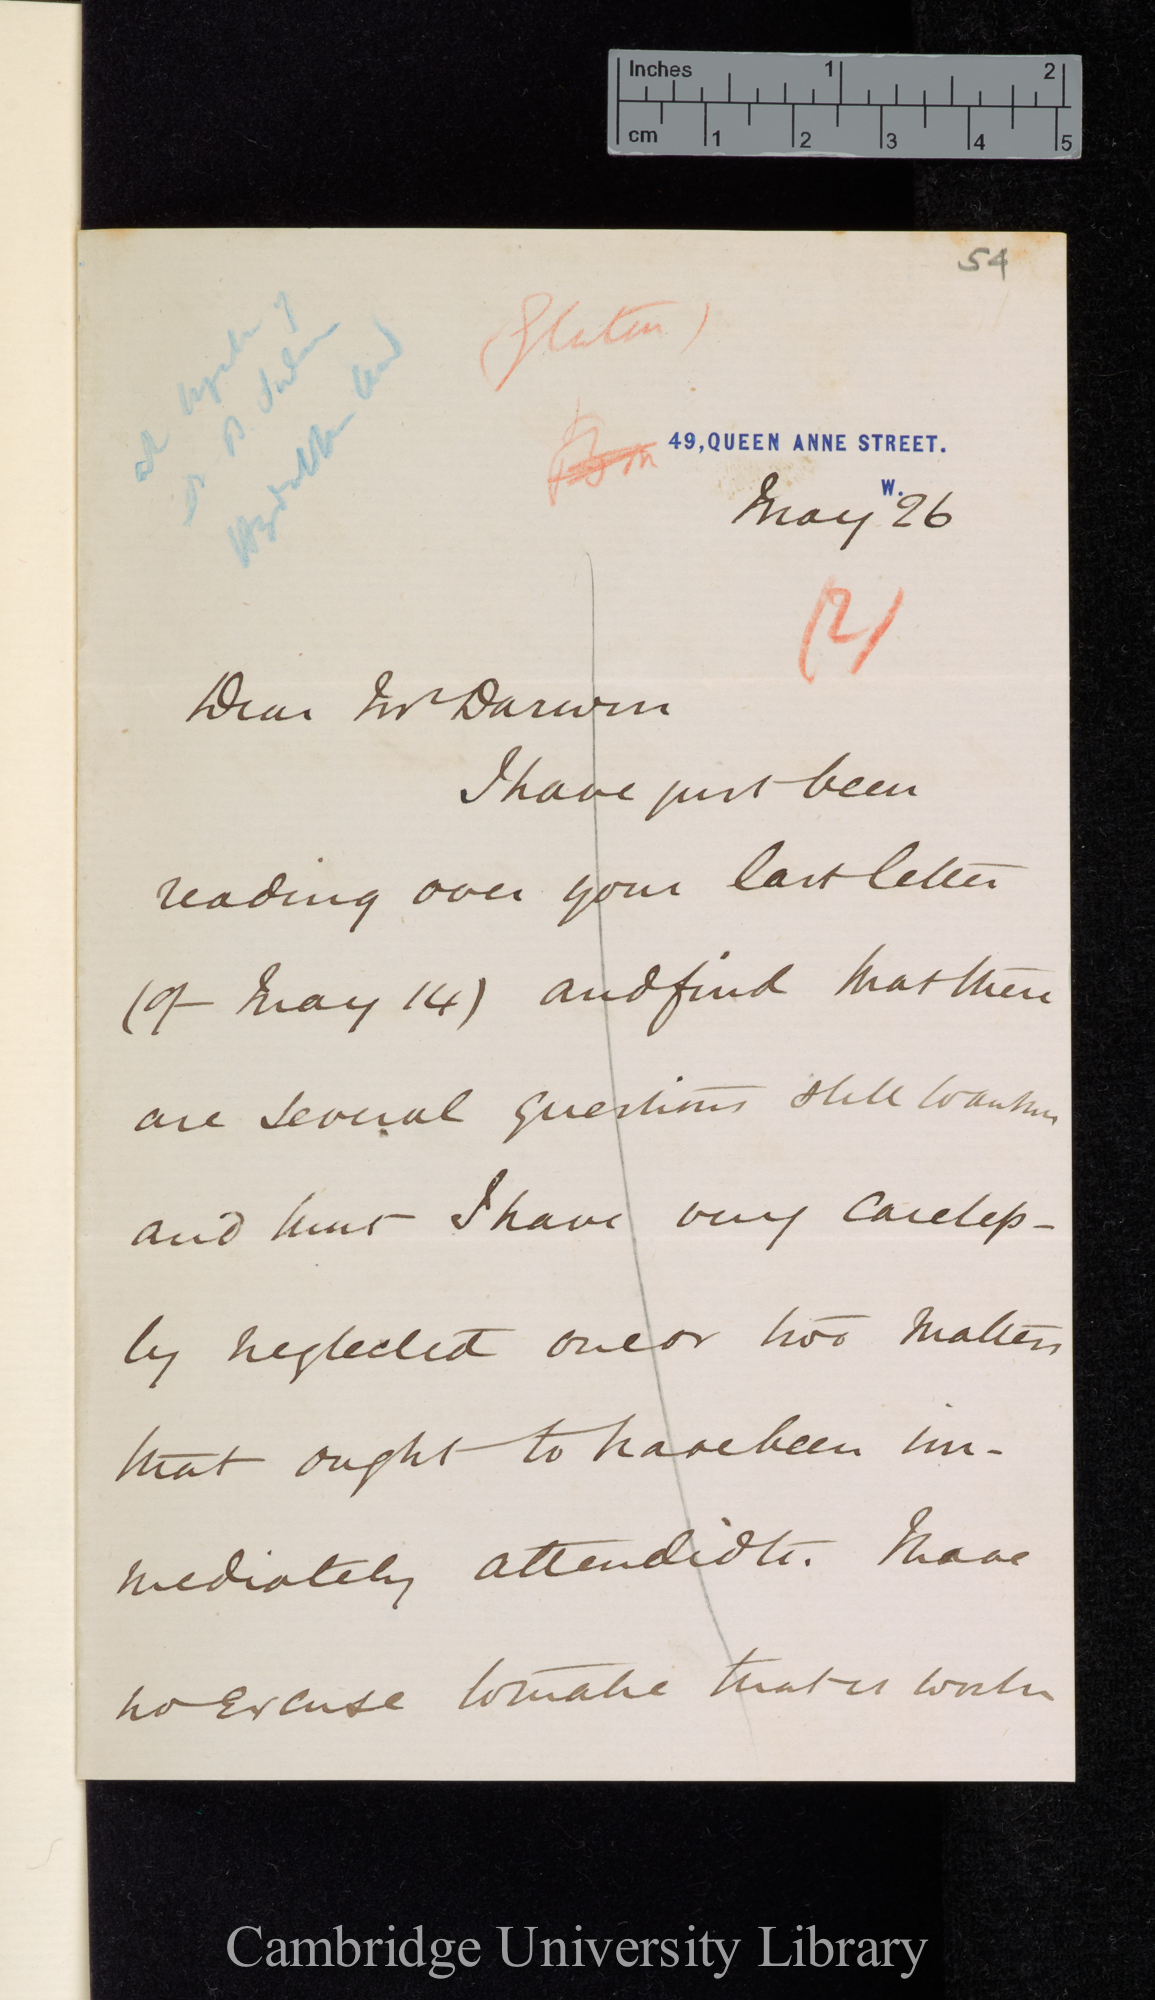 Inches 1 2
cm 1 2 3 4 5
54
(Gluten)
49, QUEEN ANNE STREET.
W.
May 26
(2)
Dear Mr Darwin
I have just been
reading over your last letter
(of May 14) and find that there
are several questions still
and that I have very careless-
ly neglected one or two matters
that ought to have been im-
mediately attended to. I have
no excuse to make that is worth
Cambridge University Library